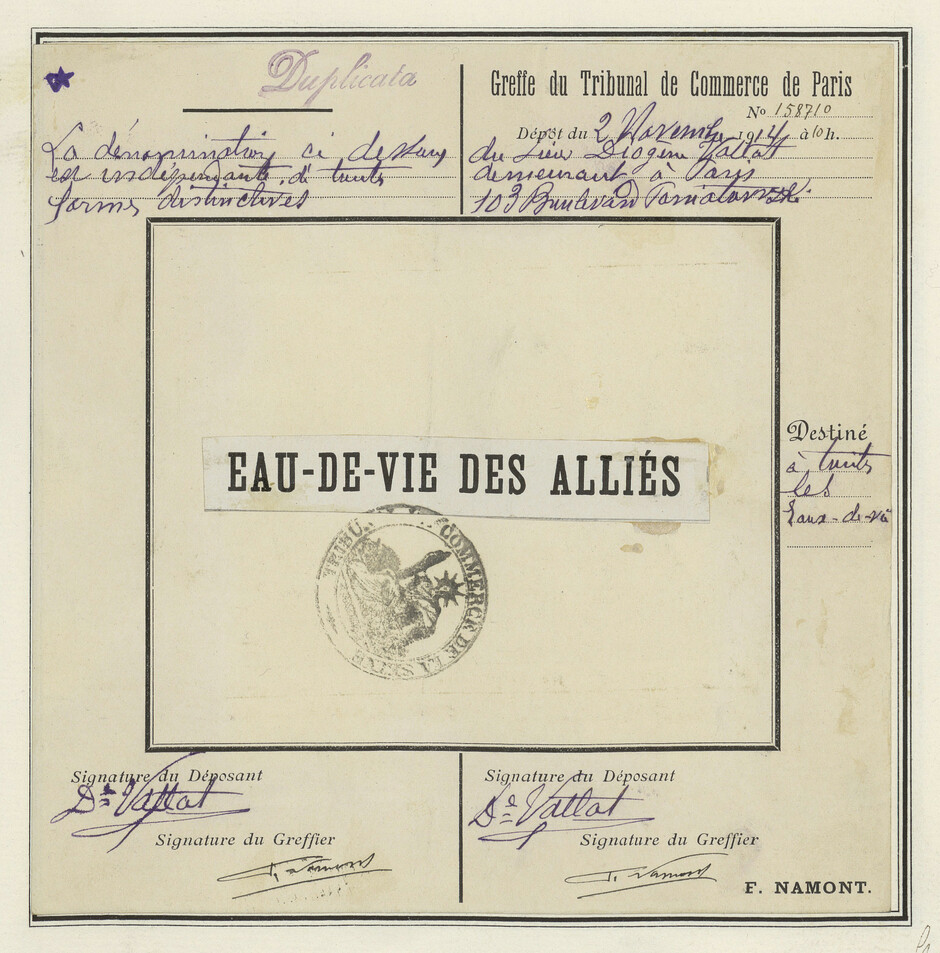 Duplicata
La dénomination ci dessus
est indépendante de toutes
formes distinctives
Greffe du Tribunal de Commerce de Paris
No 158710
Dépôt du 2 Novembre 1914 à 10 h.
du Sieur Diogène Vallat
demeurant à Paris
103 Boulevard
EAU-DE-VIE DES ALLIÉS
TRIBU COMMERCE DE LA SEINE
Destiné
à toutes
les
Eaux-de-vie
Signature du Déposant
De Vallat
Signature du Greffier
F. Namont
Signature du Déposant
De Vallat
Signature du Greffier
F. Namont
F. NAMONT.